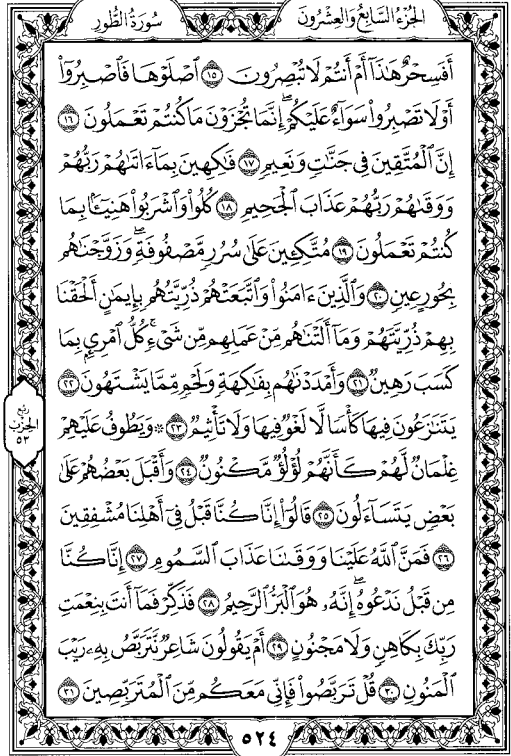 الجُزءُ السَّابِعُ وَالعِشْرُونَ
سُورَةُ الطُّورِ
أَفَسِحْرٌ هَٰذَآ أَمْ أَنتُمْ لَا تُبْصِرُونَ ١٥ ٱصْلَوْهَا فَٱصْبِرُوٓا۟
أَوْ لَا تَصْبِرُوا۟ سَوَآءٌ عَلَيْكُمْ ۖ إِنَّمَا تُجْزَوْنَ مَا كُنتُمْ تَعْمَلُونَ ١٦
إِنَّ ٱلْمُتَّقِينَ فِى جَنَّٰتٍ وَنَعِيمٍ ١٧ فَٰكِهِينَ بِمَآ ءَاتَىٰهُمْ رَبُّهُمْ
وَوَقَىٰهُمْ رَبُّهُمْ عَذَابَ ٱلْجَحِيمِ ١٨ كُلُوا۟ وَٱشْرَبُوا۟ هَنِيٓـًٔۢا بِمَا
كُنتُمْ تَعْمَلُونَ ١٩ مُتَّكِـِٔينَ عَلَىٰ سُرُرٍ مَّصْفُوفَةٍ ۖ وَزَوَّجْنَٰهُم
بِحُورٍ عِينٍ ٢٠ وَٱلَّذِينَ ءَامَنُوا۟ وَٱتَّبَعَتْهُمْ ذُرِّيَّتُهُم بِإِيمَٰنٍ أَلْحَقْنَا
بِهِمْ ذُرِّيَّتَهُمْ وَمَآ أَلَتْنَٰهُم مِّنْ عَمَلِهِم مِّن شَىْءٍ ۚ كُلُّ ٱمْرِئٍۭ بِمَا
كَسَبَ رَهِينٌ ٢١ وَأَمْدَدْنَٰهُم بِفَٰكِهَةٍ وَلَحْمٍ مِّمَّا يَشْتَهُونَ ٢٢
يَتَنَٰزَعُونَ فِيهَا كَأْسًا لَّا لَغْوٌ فِيهَا وَلَا تَأْثِيمٌ ٢٣ ۞ وَيَطُوفُ عَلَيْهِمْ
رُبع الحِزب ٥٣
غِلْمَانٌ لَّهُمْ كَأَنَّهُمْ لُؤْلُؤٌ مَّكْنُونٌ ٢٤ وَأَقْبَلَ بَعْضُهُمْ عَلَىٰ
بَعْضٍ يَتَسَآءَلُونَ ٢٥ قَالُوٓا۟ إِنَّا كُنَّا قَبْلُ فِىٓ أَهْلِنَا مُشْفِقِينَ
٢٦ فَمَنَّ ٱللَّهُ عَلَيْنَا وَوَقَىٰنَا عَذَابَ ٱلسَّمُومِ ٢٧ إِنَّا كُنَّا
مِن قَبْلُ نَدْعُوهُ ۖ إِنَّهُۥ هُوَ ٱلْبَرُّ ٱلرَّحِيمُ ٢٨ فَذَكِّرْ فَمَآ أَنتَ بِنِعْمَتِ
رَبِّكَ بِكَاهِنٍ وَلَا مَجْنُونٍ ٢٩ أَمْ يَقُولُونَ شَاعِرٌ نَّتَرَبَّصُ بِهِۦ رَيْبَ
ٱلْمَنُونِ ٣٠ قُلْ تَرَبَّصُوا۟ فَإِنِّى مَعَكُم مِّنَ ٱلْمُتَرَبِّصِينَ ٣١
٥٢٤